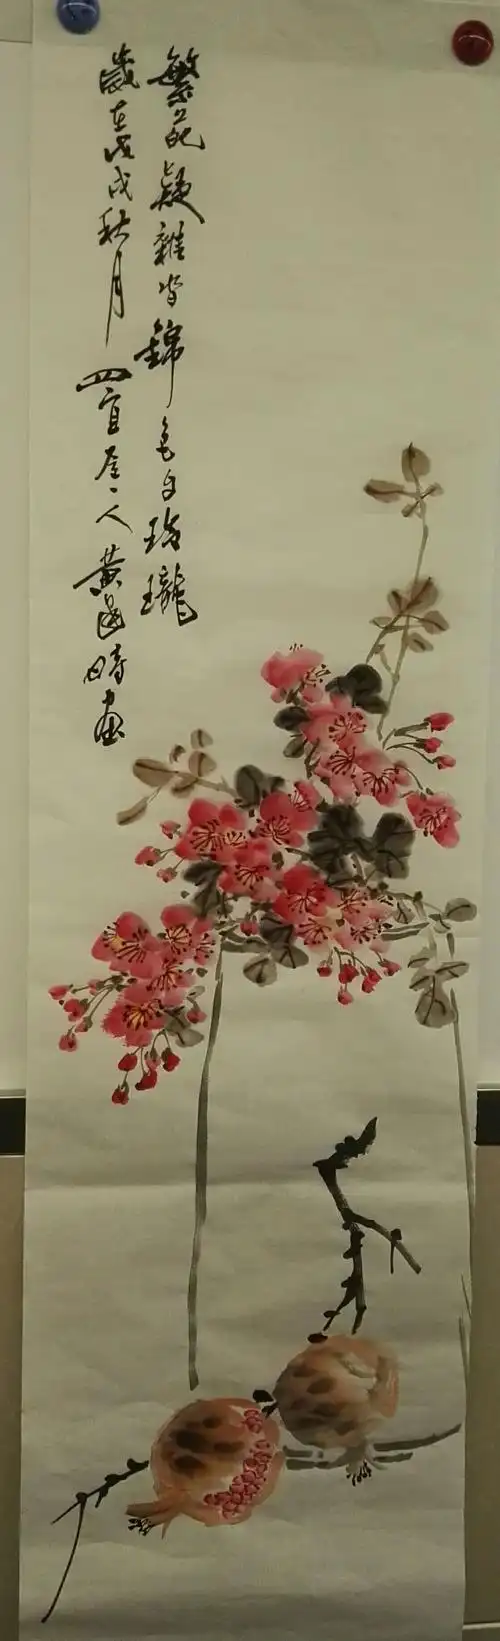 繁花疑雜皆錦色自玲瓏
歲在戊戌秋月 四宜居一人 黃 時畫